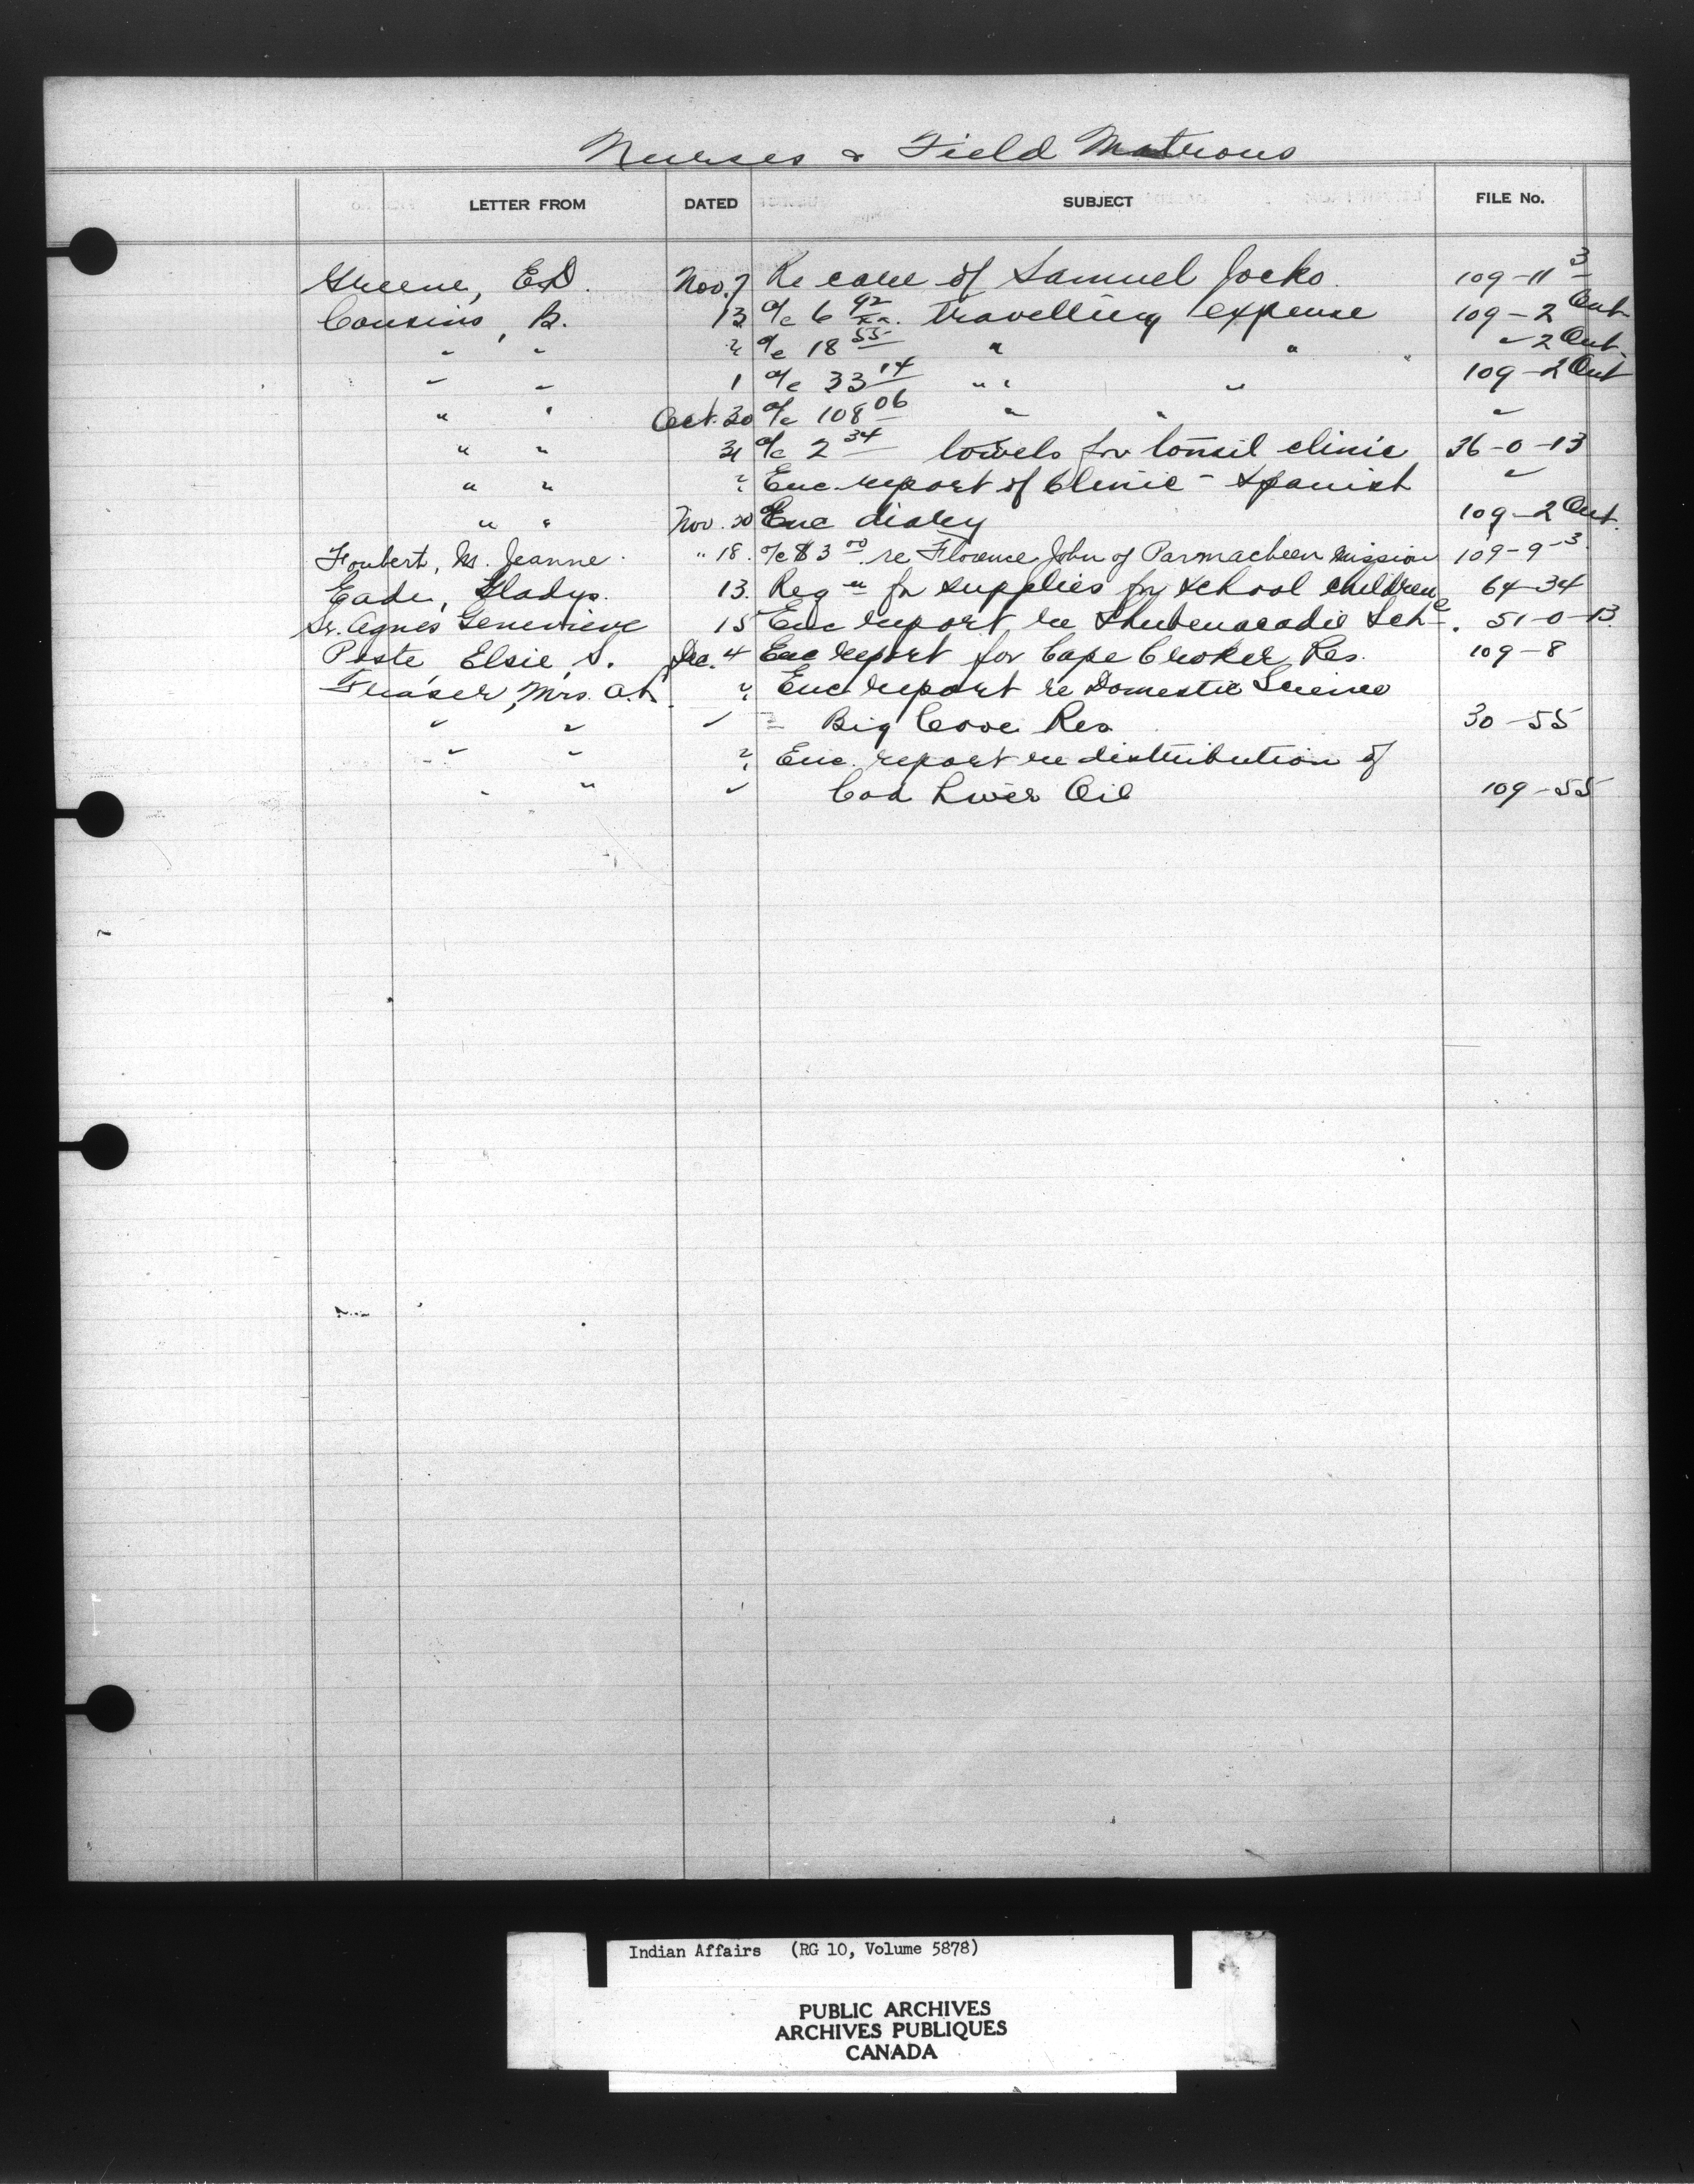 Nurses & Field Matrons
LETTER FROM DATED SUBJECT FILE No.
Greene, E.D. Nov. 7 Re care of Samuel Jocko. 109-11-3
Cousins, B. 13 a/c 6 92 travelling expense 109-2 Ont
" " " a/c 18 55 " " " 2 Ont.
" " 1 a/c 33 14 " " 109-2 Ont
" " Oct. 30 a/c 108 06 " " "
" " 31 a/c 2 34 towels for tonsil clinic 36-0-13
" " " Enc report of Clinic - Spanish "
" " Nov. 30 Enc diary 109-2 Ont.
Foubert, M. Jeanne. " 18. a/c $3 00 re Florence John of Parmacheen Mission 109-9-3
Eade, Gladys. 13. Reqn for supplies for school children 64-34
Sr. Agnes Genevieve 15 Enc report re Shubenacadie Sch. 51-0-13.
Poste, Elsie, S. Dec. 4 Enc report for Cape Croker Res. 109-8
Fraser, Mrs. " Enc report re Domestic Science
" " " Big Cove Res 30-55
" " " Enc. report re distribution of
" " " Cod Liver Oil 109-55
Indian Affairs (RG 10, Volume 5878)
PUBLIC ARCHIVES
ARCHIVES PUBLIQUES
CANADA